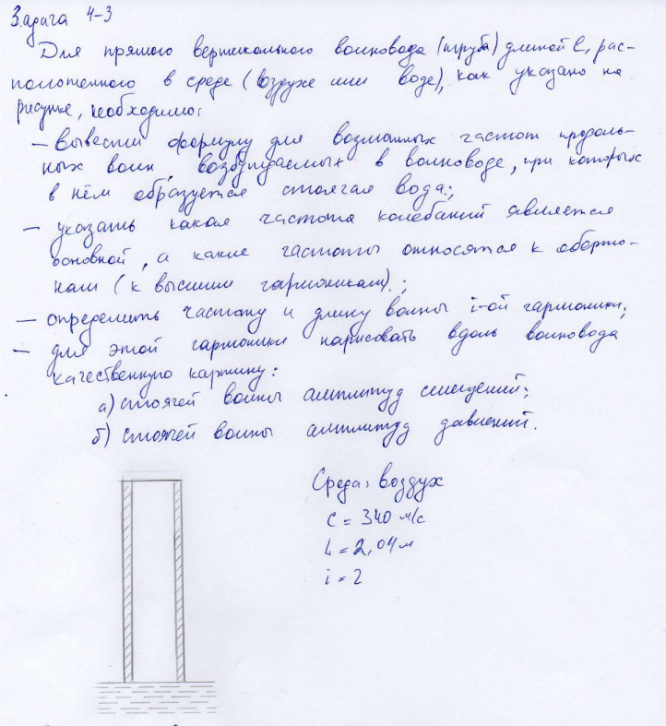 Задача 4-3
Для прямого вертикального волновода (труба) длиной l, рас-
положенного в среде (воздухе или воде), как указано на
рисунке, необходимо:
— вывести формулу для возможных частот продоль-
ных волн, возбуждаемых в волноводе, при которых
в нём образуется стоячая вода.;
— указать какая частота колебаний является
основной, а какие частоты относятся к оберто-
нам (к высшим гармоникам).;
— определить частоту и длину волны i-ой гармоники;
— для этой гармоники нарисовать вдоль волновода
качественную картину:
а) стоячей волны амплитуд смещений;
б) стоячей волны амплитуд давлений.
Среда: воздух
c = 340 м/с
L = 2,04 м
i = 2